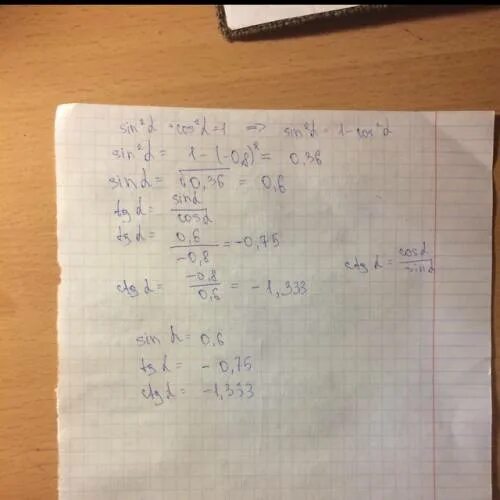 sin²α + cos²α = 1 => sin²α = 1 - cos²α
sin²α = 1 - (-0,8)² = 0,36
sin α = √0,36 = 0,6
tg α = sinα/cosα
tg α = 0,6/-0,8 = -0,75
ctg α = cosα/sinα
ctg α = -0,8/0,6 = -1,333
sin α = 0,6
tg α = -0,75
ctg α = -1,333